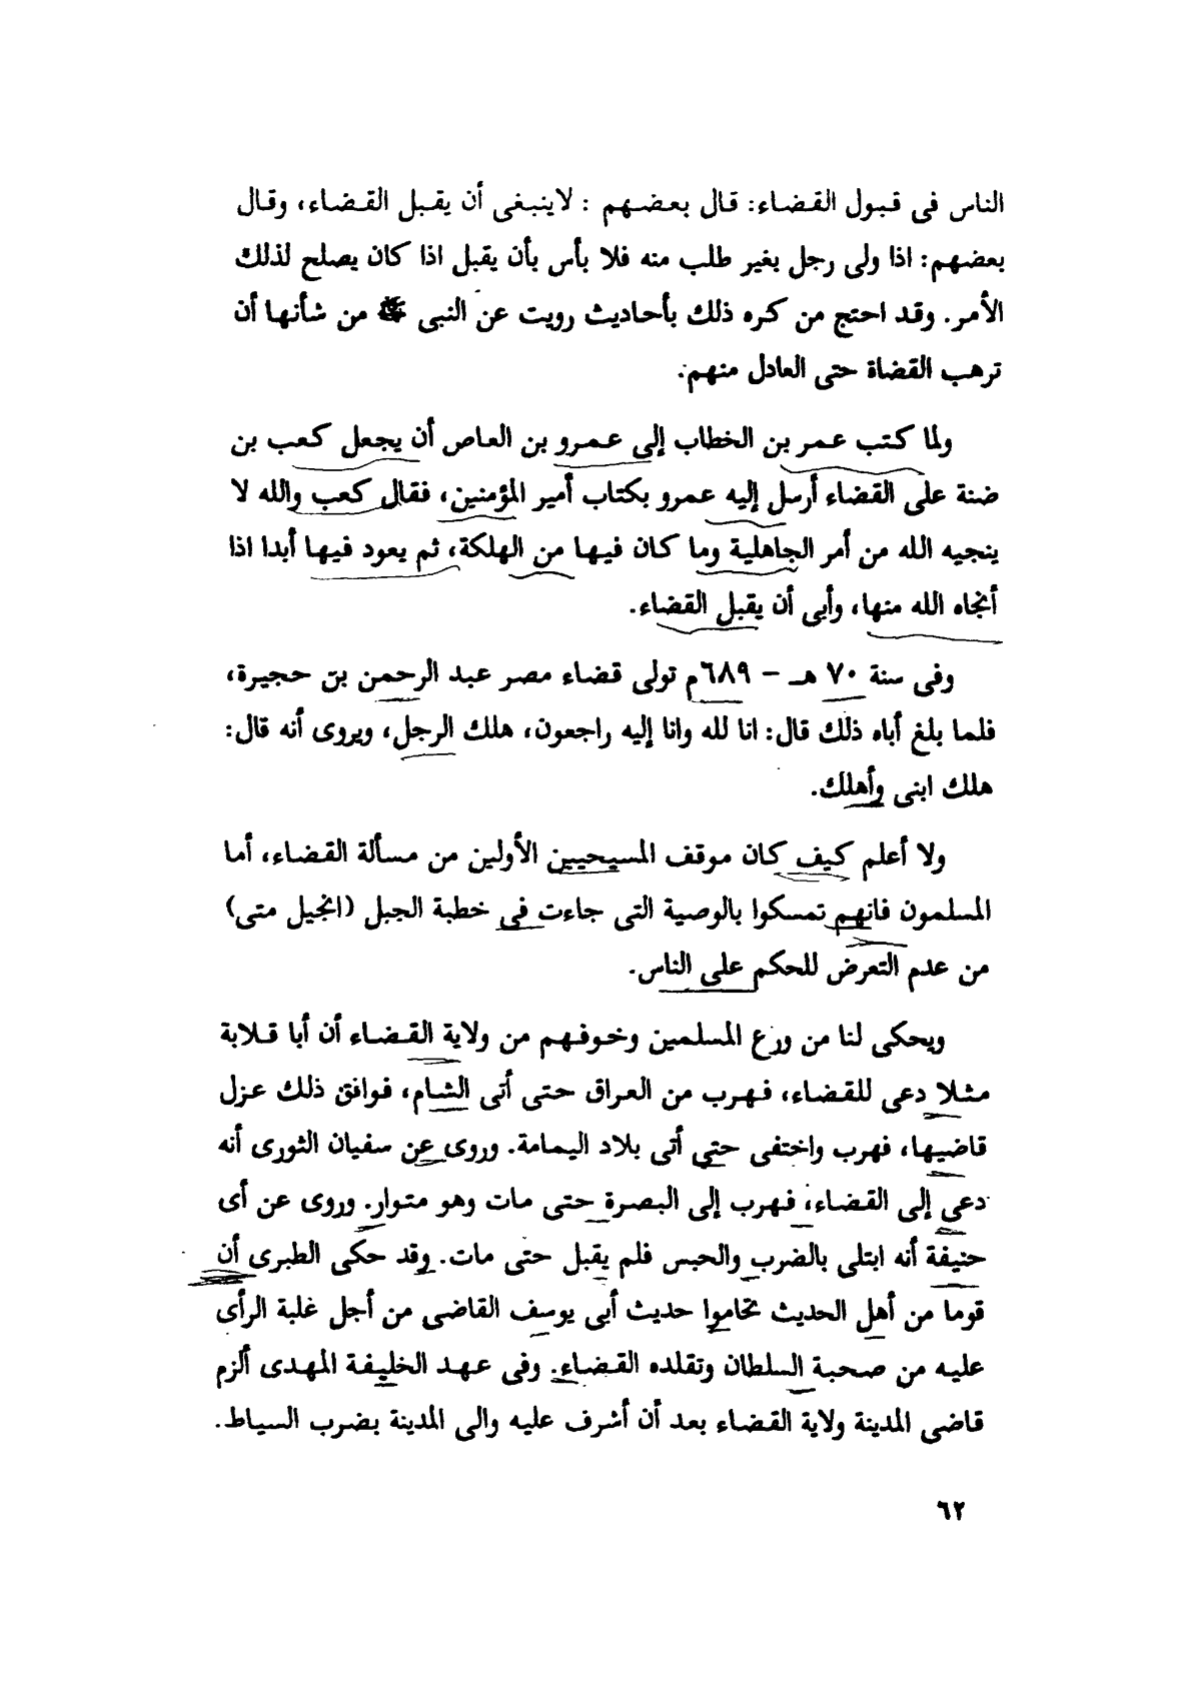 الناس فى قبول القضاء: قال بعضهم : لاينبغى أن يقبل القضاء، وقال
بعضهم: اذا ولى رجل بغير طلب منه فلا بأس بأن يقبل اذا كان يصلح لذلك
الأمر. وقد احتج من كره ذلك بأحاديث رويت عن النبى ﷺ من شأنها أن
ترهب القضاة حتى العادل منهم.
ولما كتب عمر بن الخطاب إلى عمرو بن العاص أن يجعل كعب بن
ضنة على القضاء أرسل إليه عمرو بكتاب أمير المؤمنين، فقال كعب والله لا
ينجيه الله من أمر الجاهلية وما كان فيها من الهلكة، ثم يعود فيها أبدا اذا
أنجاه الله منها، وأبى أن يقبل القضاء.
وفى سنة ٧٠ هـ - ٦٨٩م تولى قضاء مصر عبد الرحمن بن حجيرة،
فلما بلغ أباه ذلك قال: انا لله وانا إليه راجعون، هلك الرجل، ويروى أنه قال:
هلك ابنى وأهلك.
ولا أعلم كيف كان موقف المسيحيين الأولين من مسألة القضاء، أما
المسلمون فانهم تمسكوا بالوصية التى جاءت فى خطبة الجبل (انجيل متى)
من عدم التعرض للحكم على الناس.
ويحكى لنا من ورع المسلمين وخوفهم من ولاية القضاء أن أبا قلابة
مثلا دعى للقضاء، فهرب من العراق حتى أتى الشام، فوافق ذلك عزل
قاضيها، فهرب واختفى حتى أتى بلاد اليمامة. وروى عن سفيان الثورى أنه
دعى إلى القضاء، فهرب إلى البصرة حتى مات وهو متوار. وروى عن أى
حنيفة أنه ابتلى بالضرب والحبس فلم يقبل حتى مات. وقد حكى الطبرى أن
قوما من أهل الحديث تحاموا حديث أبى يوسف القاضى من أجل غلبة الرأى
عليه من صحبة السلطان وتقلده القضاء. وفى عهد الخليفة المهدى ألزم
قاضى المدينة ولاية القضاء بعد أن أشرف عليه والى المدينة بضرب السياط.
٦٢